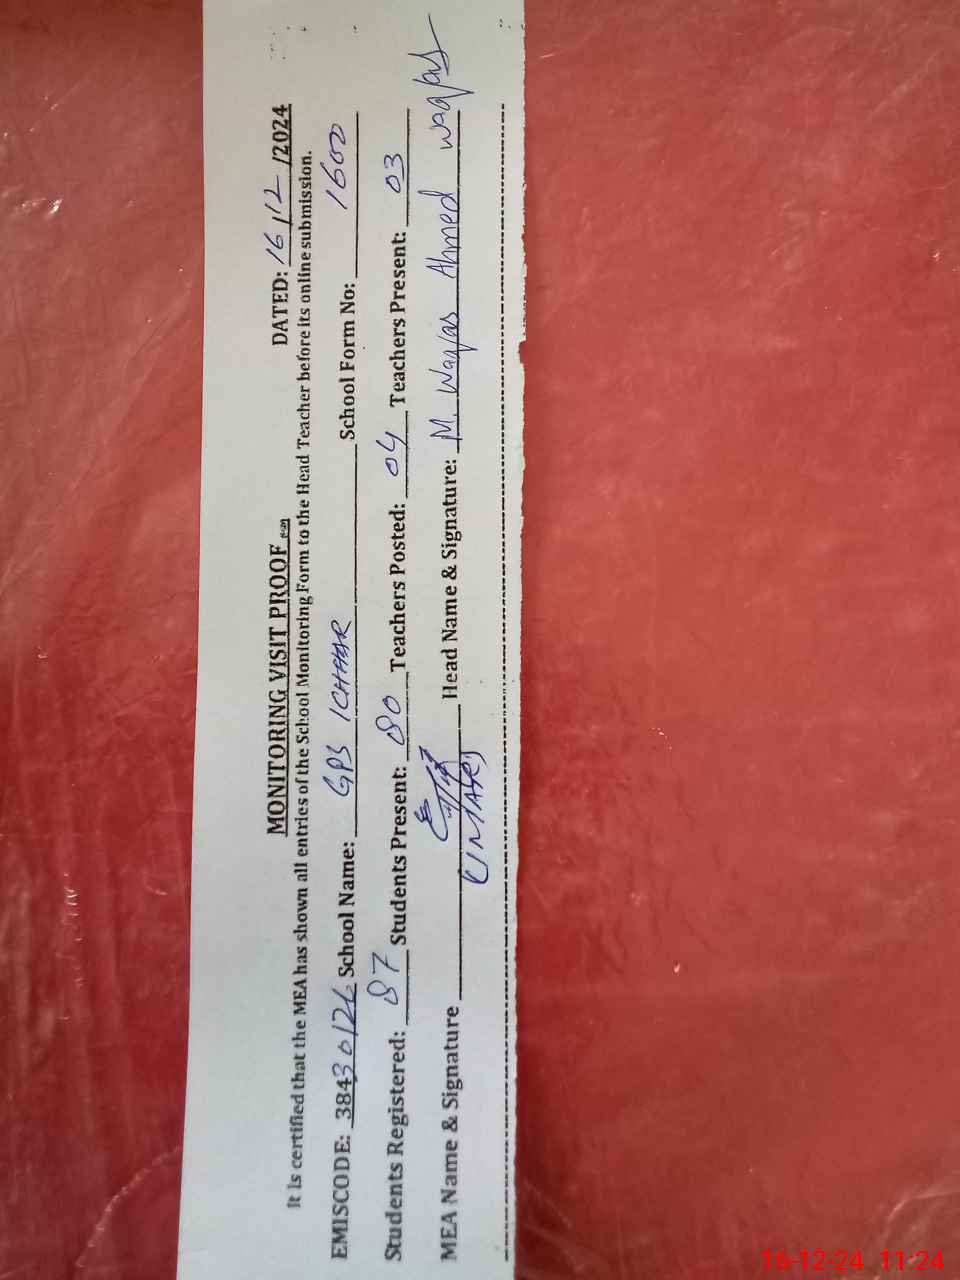 MONITORING VISIT PROOF
DATED: 16/12/2024
It is certified that the MEA has shown all entries of the School Monitoring Form to the Head Teacher before its online submission.
EMISCODE: 38430126 School Name: GPS ICHHAR School Form No: 1600
Students Registered: 87 Students Present: 80 Teachers Posted: 04 Teachers Present: 03
MEA Name & Signature Head Name & Signature: M. Waqas Ahmed waqas
16-12-24 11:24